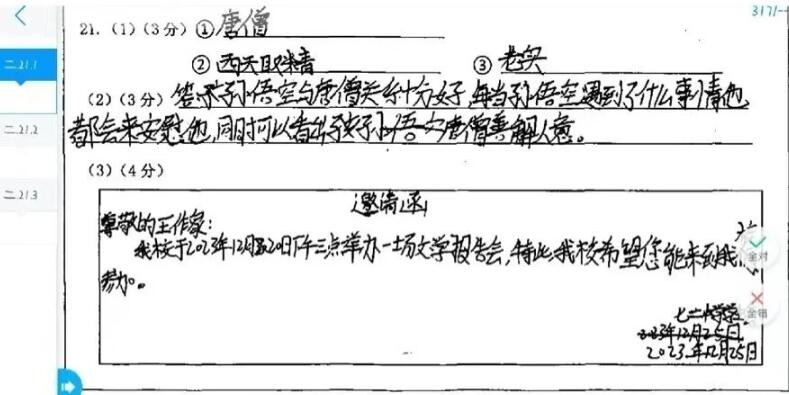 3171
21.（1）（3分）①唐僧
二21.1
②西天取经 ③老实
（2）（3分）答:表示孙悟空与唐僧关系十分好,每当孙悟空遇到了什么事情他
二21.2
都会来安慰他,同时可以看出了孩子孙悟空唐僧善解人意。
（3）（4分）
二21.3
邀请函
尊敬的王作家：
我校于2023年12月20日下午三点举办一场文学报告会,特此,我校希望您能来到我
全对
参加。
全错
七二中学
2023年12月25日
2023年12月25日